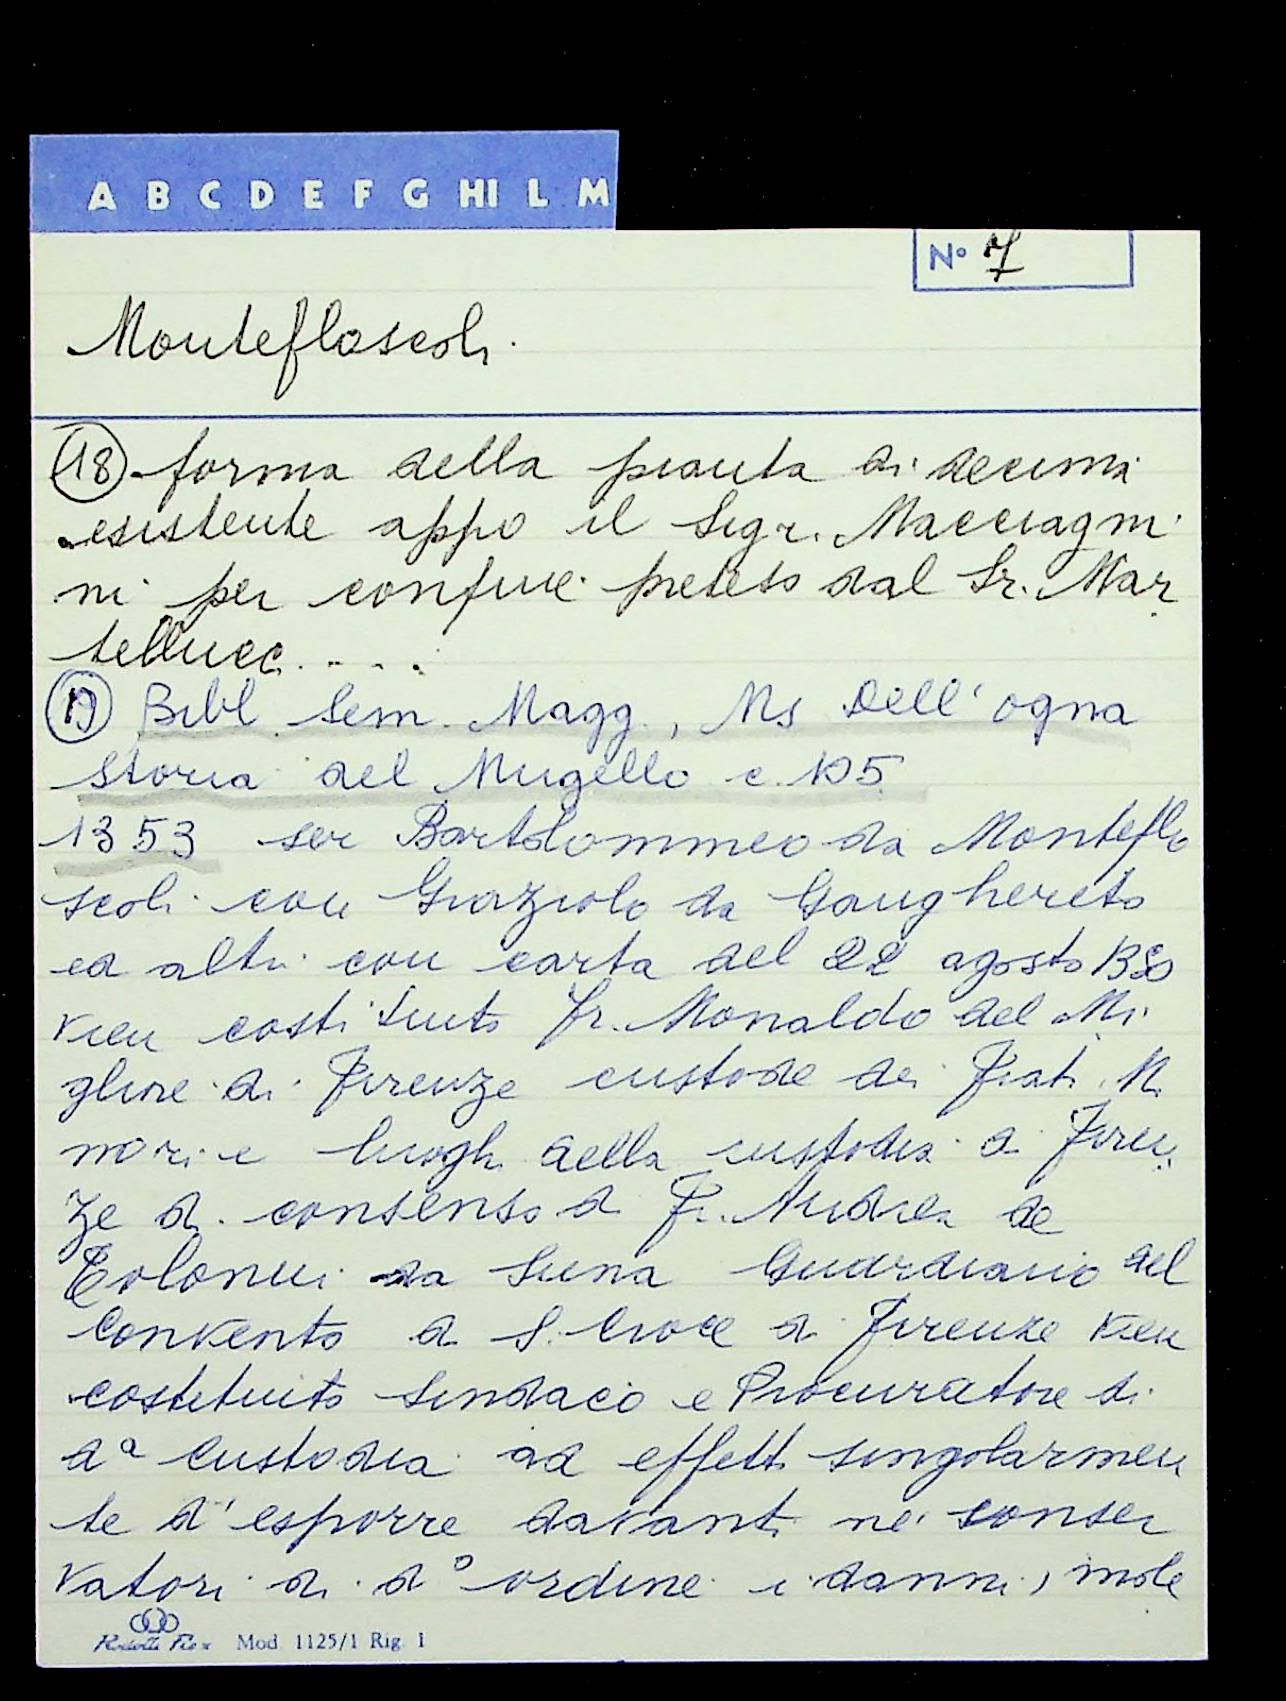 A B C D E F G HI L M
N° 7
Montefloscoli.
18) forma della pianta di decima
esistente appo il Sigr. Macciagni
ni per confine preteso dal Sr. Mar
tellucci....
19) Bibl. Sem. Magg., Ms Dell'ogna
storia del Mugello c. 105
1353 ser Bartolommeo da Monteflo
scoli con Graziolo da Ganghereto
ed altri con carta del 22 agosto
vien costituito fr. Monaldo del Mi
gliore di Firenze custode dei Frati Mi
nori e luoghi della custodia di Firen
ze di consenso di Fr. Andrea de
Tolomei da Siena Guardiano del
Convento di S. Croce di Firenze vien
costituito sindaco e Procuratore di
da Custodia ad effetti singolarmen
te d'esporre davanti ne' conser
vatori di do ordine i danni, mole
Mod 1125/1 Rig. 1